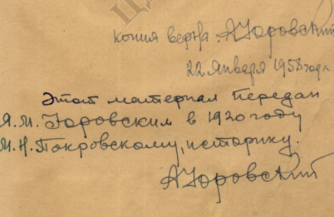 копия верна. АЮровский
22 Января 1958 года
Этот материал передан
Я.М. Юровским в 1920 году
М.Н. Покровскому, историку.
АЮровский